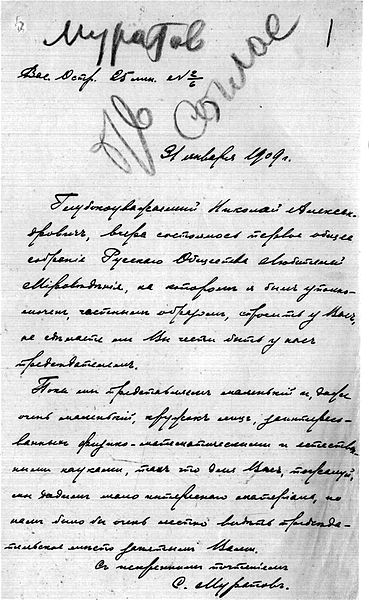 Муратов
1
Вас. Остр. 25 лин. д №2/6
Не согласе
31 января 1909 г.
Глубокоуважаемый Николай Алексан-
дровичъ, вчера состоялось первое общее
собраніе Русскаго Общества Любителей
Мироведенія, на которомъ я былъ уполно-
моченъ частнымъ образомъ, спросить у Васъ,
не сделаете ли Вы чести быть у насъ
председателемъ.
Пока мы представляемъ маленькій и, даже
очень маленькій, кружокъ лицъ, заинтересо-
ванныхъ физико-математическими и естествен-
ными науками, такъ что для Васъ, пожалуй,
мы дадимъ мало интереснаго матеріала, но
намъ было бы очень лестно видеть председа-
тельское место занятымъ Вами.
Съ искреннимъ почтеніемъ
С. Муратовъ.